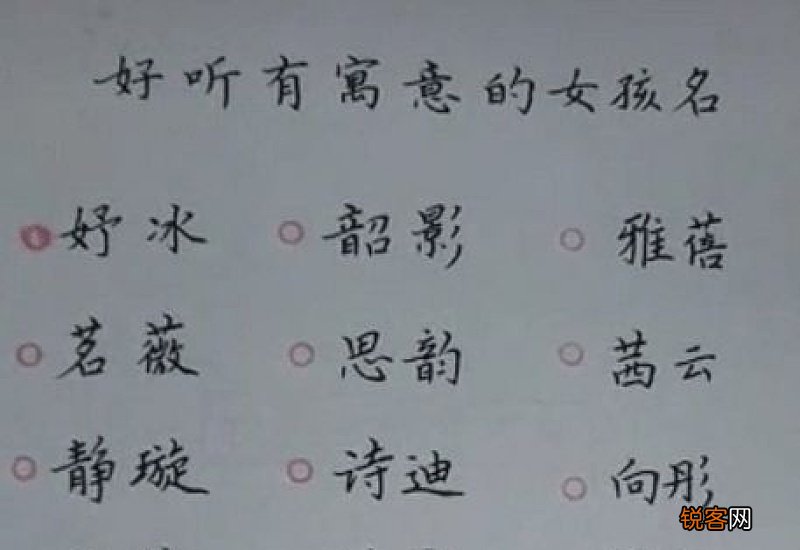 好听有寓意的女孩名
妤冰 韶影 雅蓓
茗薇 思韵 茜云
静璇 诗迪 向彤
锐客网